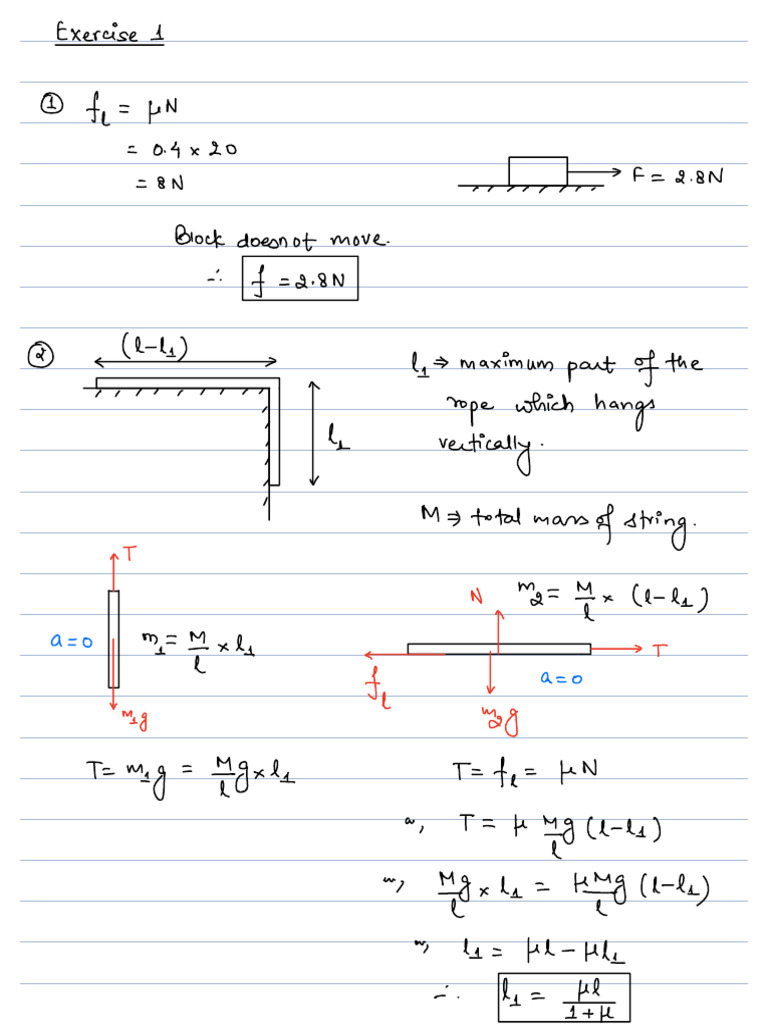 Exercise 1
① f_l = μN
= 0.4 × 20
= 8N
F = 2.8N
Block doesnot move.
∴ f = 2.8N
②
(l-l₁)
l₁
l₁ ⇒ maximum part of the
rope which hangs
vertically.
M ⇒ total mass of string.
T
a=0
m₁ = M/l × l₁
m₁g
m₂ = M/l × (l-l₁)
N
T
f_l
a=0
m₂g
T = m₁g = M/l g × l₁
T = f_l = μN
T = μ M/l g (l-l₁)
M/l g × l₁ = μM/l g (l-l₁)
l₁ = μl - μl₁
∴ l₁ = μl/1+μ